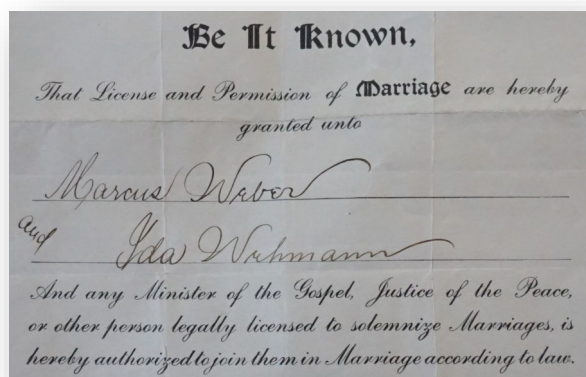 Be It Known,
That License and Permission of Marriage are hereby
granted unto
Marcus Weber
and
Ida Wehmann
And any Minister of the Gospel, Justice of the Peace,
or other person legally licensed to solemnize Marriages, is
hereby authorized to join them in Marriage according to law.